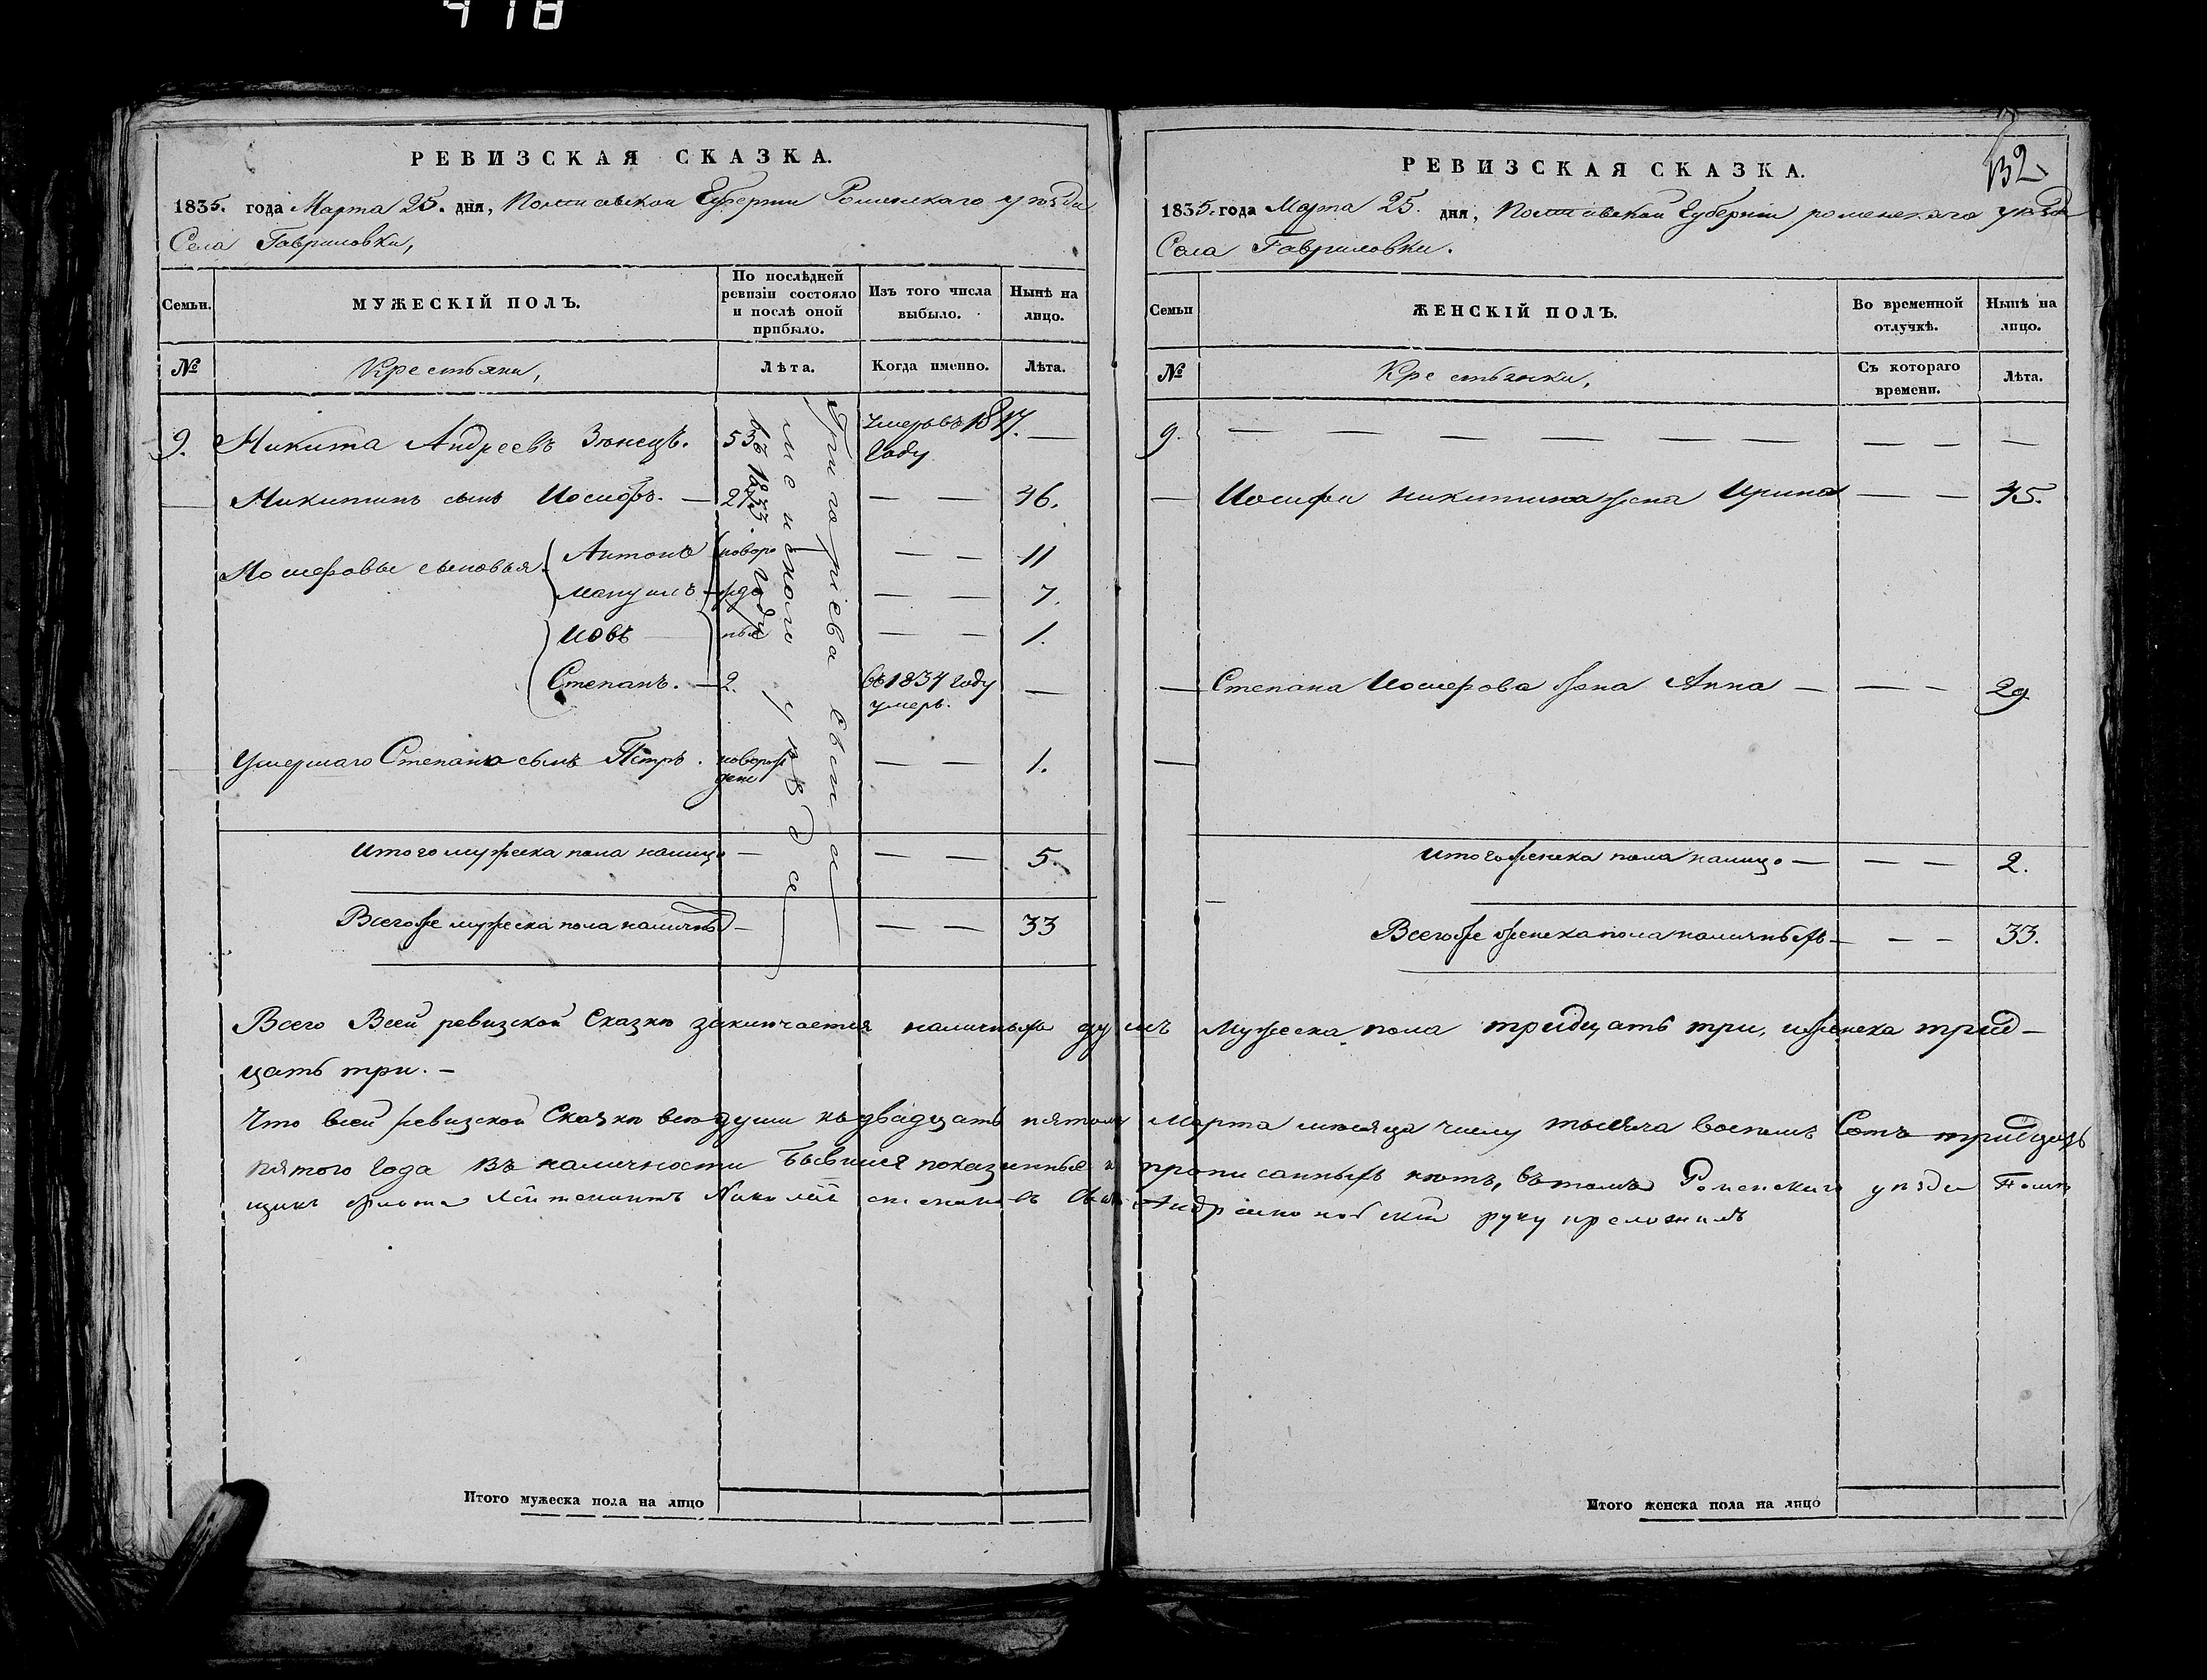 418
РЕВИЗСКАЯ СКАЗКА.
1835. года Марта 25. дня, Полтавской Губернии Роменского уѣзда
Села Гавриловки,
Семьи.
МУЖЕСКІЙ ПОЛЪ.
По послѣдней ревизіи состояло и послѣ оной прибыло.
Изъ того числа выбыло.
Нынѣ на лицо.
№
Крестьяни,
Лѣта.
Когда именно.
Лѣта.
9. Никита Андреевъ 53 умеръ въ 1817. году —
— Никитинъ сынъ Иосифъ. — — — 46.
Иосифовы сыновья Антонъ новоро — — 11
Мануилъ — жде — — 7.
Иовъ — ные — — 1.
Степанъ. — 2. въ 1834 году умеръ. —
Умершаго Степана сынъ Петръ. новорож денъ — — 1.
Итого мужеска пола налицо — — — 5.
Всегоже мужеска пола наличныхъ — — — 33
въ 1833. году
менского уѣзда
Григоріева
РЕВИЗСКАЯ СКАЗКА.
132
1835. года Марта 25. дня, Полтавской Губерніи роменскаго уѣзда
Села Гавриловки.
Семьи
ЖЕНСКІЙ ПОЛЪ.
Во временной отлучкѣ.
Нынѣ на лицо.
№
Крестьянки,
Съ котораго времени.
Лѣта.
9. — — — — — — — — —
— Иосифа Никитина жена Ирина — — 45.
— Степана Иосифова жена Анна — — — 29
Итого женска пола налицо — — — 2.
Всегоже женска пола наличныхъ — — — 33.
Всего Всей ревизской Сказкѣ заключается наличныхъ душъ Мужеска пола тридцать три, иженска трид-
цать три. —
Что всей ревизской Сказкѣ всѣ души къ двадцать пятому Марта мѣсяца числу тысяча восемь Сотъ тридцать
пятого Года Въ наличности бывшіе показанные и прописанныхъ нѣтъ, вътомъ Роменского уѣзда Помѣ
щикъ флота Лейтенантъ Николай руку приложилъ
Итого мужеска пола на лицо
Итого женска пола на лицо